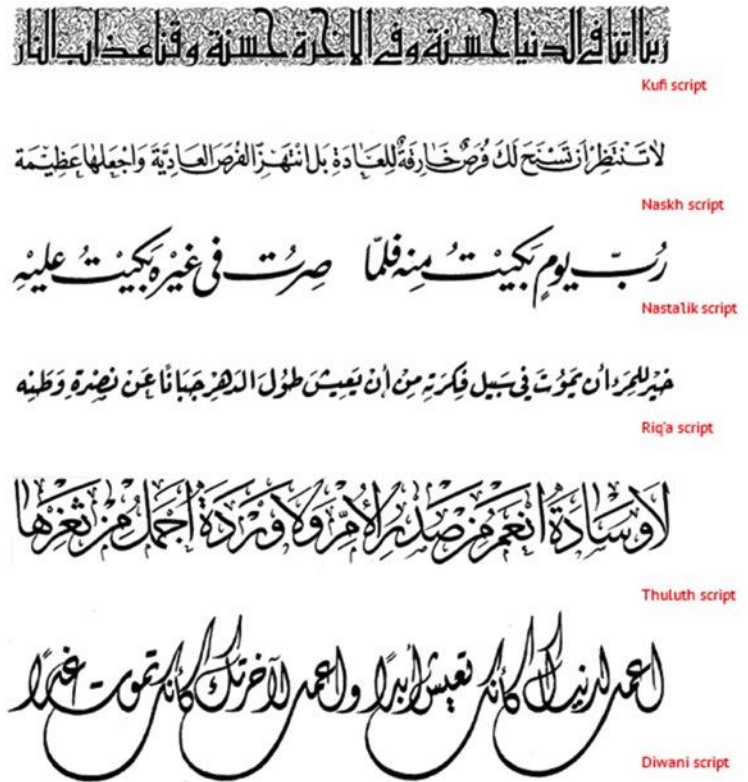 ربنا اتنا في الدنيا حسنة وفي الاخرة حسنة وقنا عذاب النار
Kufi script
لَا تَنْتَظِرْ أَنْ تَسْنَحَ لَكَ فُرَصٌ خَارِقَةٌ لِلعَادَةِ بَلِ انْتَهِزِ الفُرَصَ العَادِيَّةَ وَاجْعَلْهَا عَظِيْمَة
Naskh script
رُبَّ يومٍ بَكيْتُ منِه فلمّا صِرْت في غيْرِه بَكيْتُ عليْهِ
Nasta'lik script
خيْرٌ للمَرءِ أن يَمُوْتَ في سَبيل فِكرَتِهِ مِنْ أنْ يَعِيشَ طوُلَ الدَهْرِ جَبَانًا عَنْ نصْرَةِ وَطنِه
Riq'a script
لَا وِسَادَةَ أَنْعَمُ مِنْ صَدْرِ الأُمِّ وَلَا وَرْدَةَ أَجْمَلُ مِنْ ثَغْرِهَا
Thuluth script
اعمل لدنياك كأنك تعيش أبدًا واعمل لآخرتك كأنك تموت غدًا
Diwani script